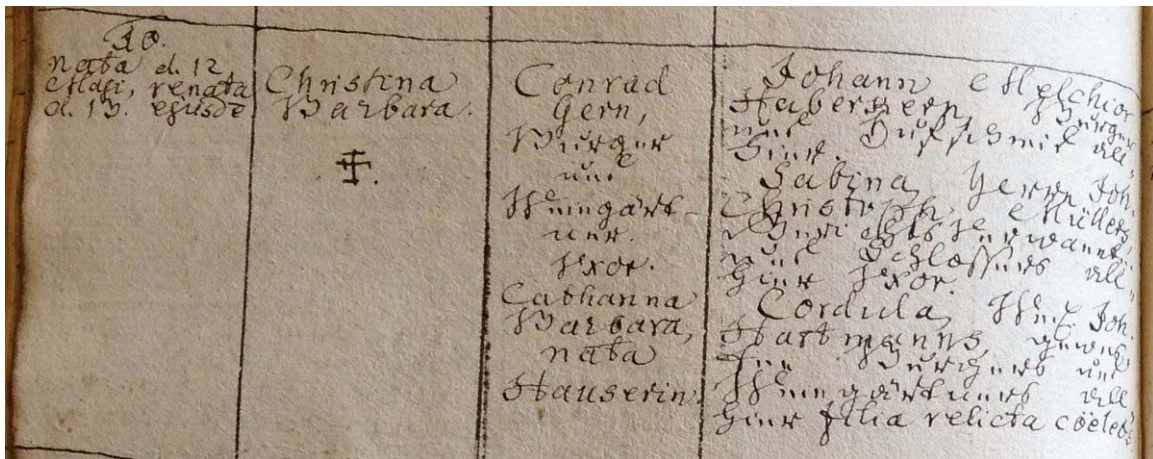 10.
nata d. 12
Maji, renata
d. 13. ejusde
Christina
Barbara.
Conrad
Gern,
Burger
und
Weingärt-
ner.
Uxor.
Catharina
Barbara,
nata
Hauserin.
Johann Melchior
Haberkern, Burger
und Huffschmid all-
hier.
Sabina, Herrn Joh.
Christoph Müllers,
Gerichtsverwant.
und Schlossers all-
hier Uxor.
Cordula, Weÿl. Joh.
Hartmanns, gewes-
nen Burgers und
Weingärtners all-
hier filia relicta coelebs